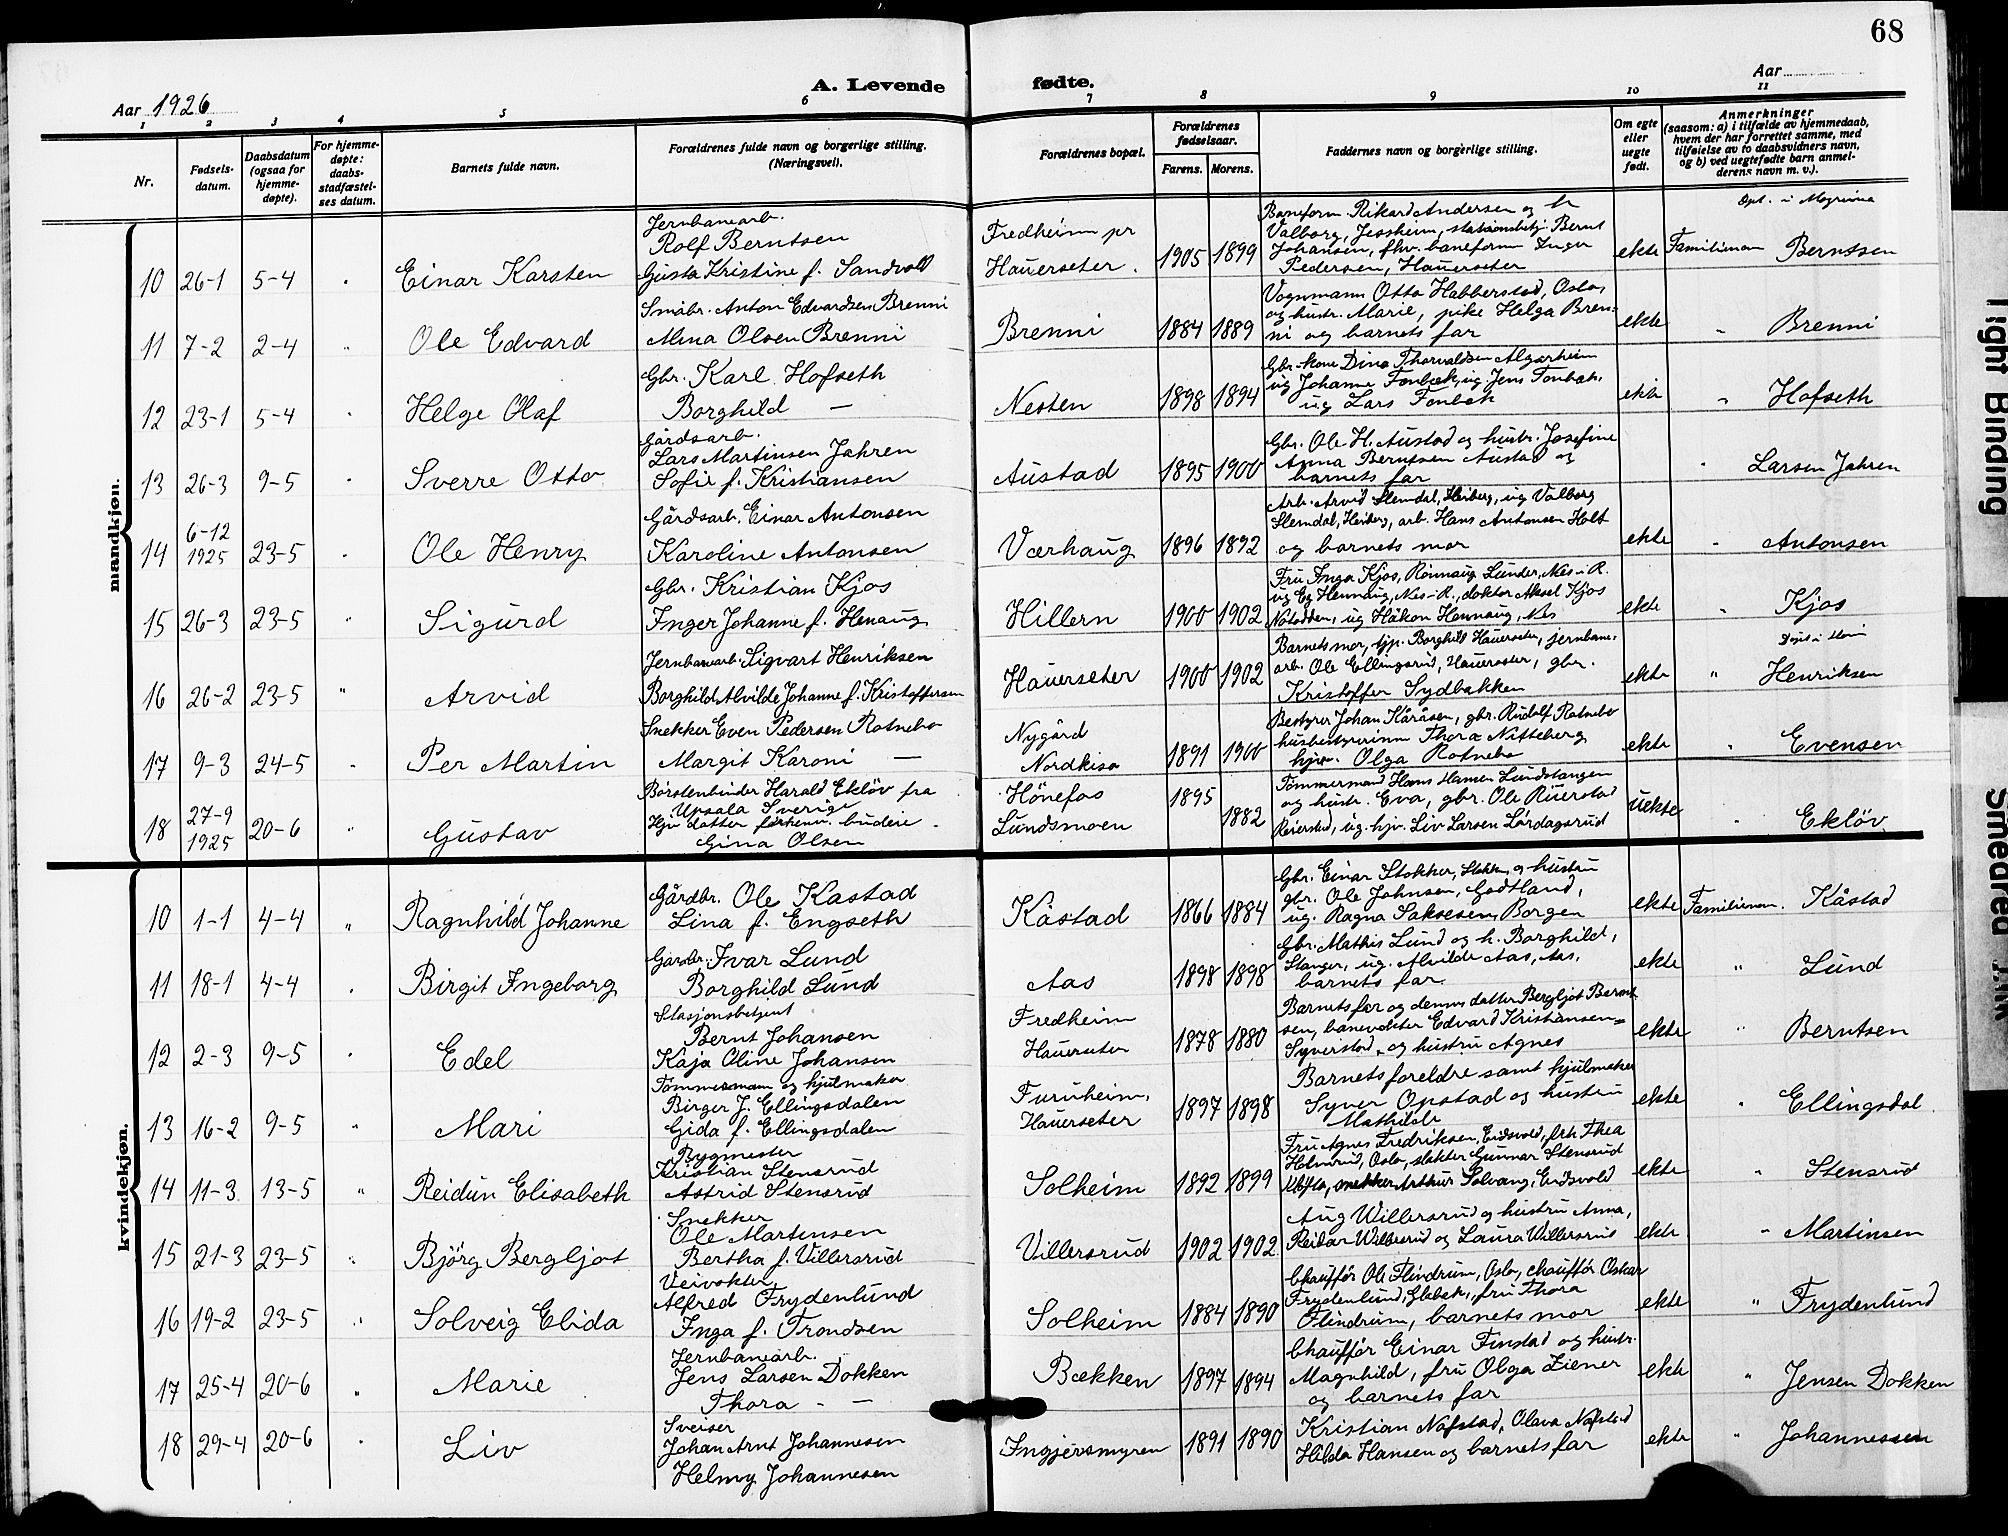 68
Aar 1926
A. Levende fødte.
Aar
1 2 3 4 5 6 7 8 9 10 11
Nr.
Fødsels-
datum.
Daabsdatum
(ogsaa for
hjemme-
døpte).
For hjemme-
døpte:
daabs-
stadfæstel-
ses datum.
Barnets fulde navn.
Forældrenes fulde navn og borgerlige stilling.
(Næringsvei).
Forældrenes bopæl.
Forældrenes
fødselsaar.
Farens. Morens.
Faddernes navn og borgerlige stilling.
Om egte
eller
uegte
født.
Anmerkninger
(saasom: a) i tilfælde av hjemmedaab,
hvem der har forrettet samme, med
tilføielse av to daabsvidners navn,
og b) ved uegtefødte barn anmel-
derens navn m. v.).
mandkjøn.
10 26-1 5-4 Einar Karsten
Jernbanearb.
Rolf Berntsen
Gusta Kristine f. Sandvold
Fredheim pr
Hauerseter.
1905 1899
Baneform. Rikard Andersen og h
Valborg, Jessheim, stationsbetj. Bernt
Johansen, fhv. baneform Inger
Pedersen, Hauerseter
ekte Familienavn Berntsen
11 7-2 2-4 " Ole Edvard
Småbr. Anton Edvardsen Brenni
Mina Olsen Brenni
Brenni
1884 1889
Vognmann Otto Habberstad, Oslo,
og hustr. Marie, pike Helga Bren-
ni og barnets far
ekte " Brenni
12 23-1 5-4 Helge Olaf
Gbr. Karl Hofseth
Borghild —
Nesten
1898 1894
Gbr.-kone Dina Thorvaldsen Algarheim
ug Johanne Fonbæk, ug Jens Fonbæk,
ug Lars Fonbæk
ekte " Hofseth
13 26-3 9-5 Sverre Otto
Gårdsarb.
Lars Martinsen Jahren
Sofie f. Kristiansen
Austad
1895 1900
Gbr. Ole H. Austad og hustr. Josefine
Anna Berntsen Austad og
barnets far
" Larsen Jahren
14 6-12 1925 23-5 Ole Henry
Gårdsarb. Einar Antonsen
Karoline Antonsen
Værhaug
1896 1892
Arb. Arvid Slemdal, Heiberg, ug Valborg
Slemdal, Heiberg, arb. Hans Antonsen Holt
og barnets mor
ekte " Antonsen
15 26-3 23-5 " Sigurd
Gbr. Kristian Kjos
Inger Johanne f. Henaug
Hillern
1900 1902
Fru Inga Kjos, Rönnaug Lunder, Nes i R.
ug Eg Hennaug, Nes i R., doktor Aksel Kjos
Notodden, ug Håkon Hennaug, Nes
ekte " Kjos
16 26-2 23-5 " Arvid
Jernbanearb. Sigvart Henriksen
Borghild Alvilde Johanne f. Kristoffersen
Hauerseter
1900 1902
Barnets mor, tjp. Borghild Hauerseter, jernbane-
arb. Ole Ellingsrud, Hauerseter, gbr.
Kristoffer Sydbakken
ekte " Henriksen
17 9-3 24-5 Per Martin
Snekker Even Pedersen Rotnebo
Margit Karoni —
Nygård
Nordkisa
1891 1900
Bestyrer Johan Kåråsen, gbr. Rudolf Rotnebo
husbestyrerinne Thora Nitteberg
hjv. Olga Rotnebo
ekte " Evensen
18 27-9 1925 20-6 " Gustav
Børstenbinder Harald Ekløv fra
Upsala Sverige
Hjv datter budeie
Gina Olsen
Hönefos
Lundsmoen
1895 1882
Tömmermand Hans Hansen Lundstangen
og hustr. Eva, gbr. Ole Ruerstad
Reierstad, ug. hjv. Liv Larsen Lördagsrud
uekte " Eklöv
kvindekjøn.
10 1-1 4-4 " Ragnhild Johanne
Gårdbr. Ole Kastad
Lina f. Engseth
Kåstad
1866 1884
Gbr. Einar Stokker, Stokker og hustru
gbr. Ole Johnsen, Godtland,
ug. Ragna Saksesen, Borgen
ekte Familienavn. Kåstad
11 18-1 4-4 Birgit Ingeborg
Gårdbr. Ivar Lund
Borghild Lund
Aas
1898 1898
Gbr. Mathis Lund og h. Borghild,
Stanger, ug. Alvilde Aas, Aas,
barnets far
ekte " Lund
12 2-3 9-5 Edel
Stasjonsbetjent
Bernt Johansen
Kaja Oline Johansen
Fredheim
Hauerseter
1878 1880
Barnets far og dennes datter Bergljot Bernt-
sen, banevokter Edvard Kristiansen
Syverstad og hustru Agnes
ekte " Berntsen
13 16-2 9-5 " Mari
Tömmermann og hjulmaker
Birger J. Ellingsdalen
Gida f. Ellingsdalen
Furuheim,
Hauerseter
1897 1898
Barnets foreldre samt hjulmaker
Syver Opstad og hustru
Mathilde
ekte " Ellingsdal
14 11-3 13-5 " Reidun Elisabeth
Bygmester
Kristian Stensrud
Astrid Stensrud
Solheim
1892 1899
Fru Agnes Fredriksen, Eidsvold, frk Thea
Holmsrud, Oslo, slakter Gunnar Stensrud
Kløfta, snekker Arthur Solvang, Eidsvold
ekte " Stensrud
15 21-3 23-5 " Björg Bergljot
Snekker
Ole Martinsen
Bertha f. Villersrud
Villersrud
1902 1902
Aug Willersrud og hustru Anna,
Reidar Willersrud og Laura Willersrud
ekte " Martinsen
16 19-2 23-5 " Solveig Elida
Veivokter
Alfred Frydenlund
Inga f. Trondsen
Solheim
1884 1890
Chauffør Ole Flindrum, Oslo, chauffør Oskar
Frydenlund, fru Thora
Flindrum, barnets mor
ekte " Frydenlund
17 25-4 20-6 " Marie
Jernbanearb.
Jens Larsen Dokken
Thora - —
Bækken
1897 1894
Chauffør Einar Finstad og hustr.
Magnhild, fru Olga Ziener
og barnets far
ekte " Jensen Dokken
18 29-4 20-6 Liv
Sveiser
Johan Arnt Johannesen
Helmy Johannesen
Ingjersmyren
1891 1890
Kristian Nafstad, Olava Nafstad
Hilda Hansen og barnets far
ekte " Johannessen
Tight Binding
Smeared Ink